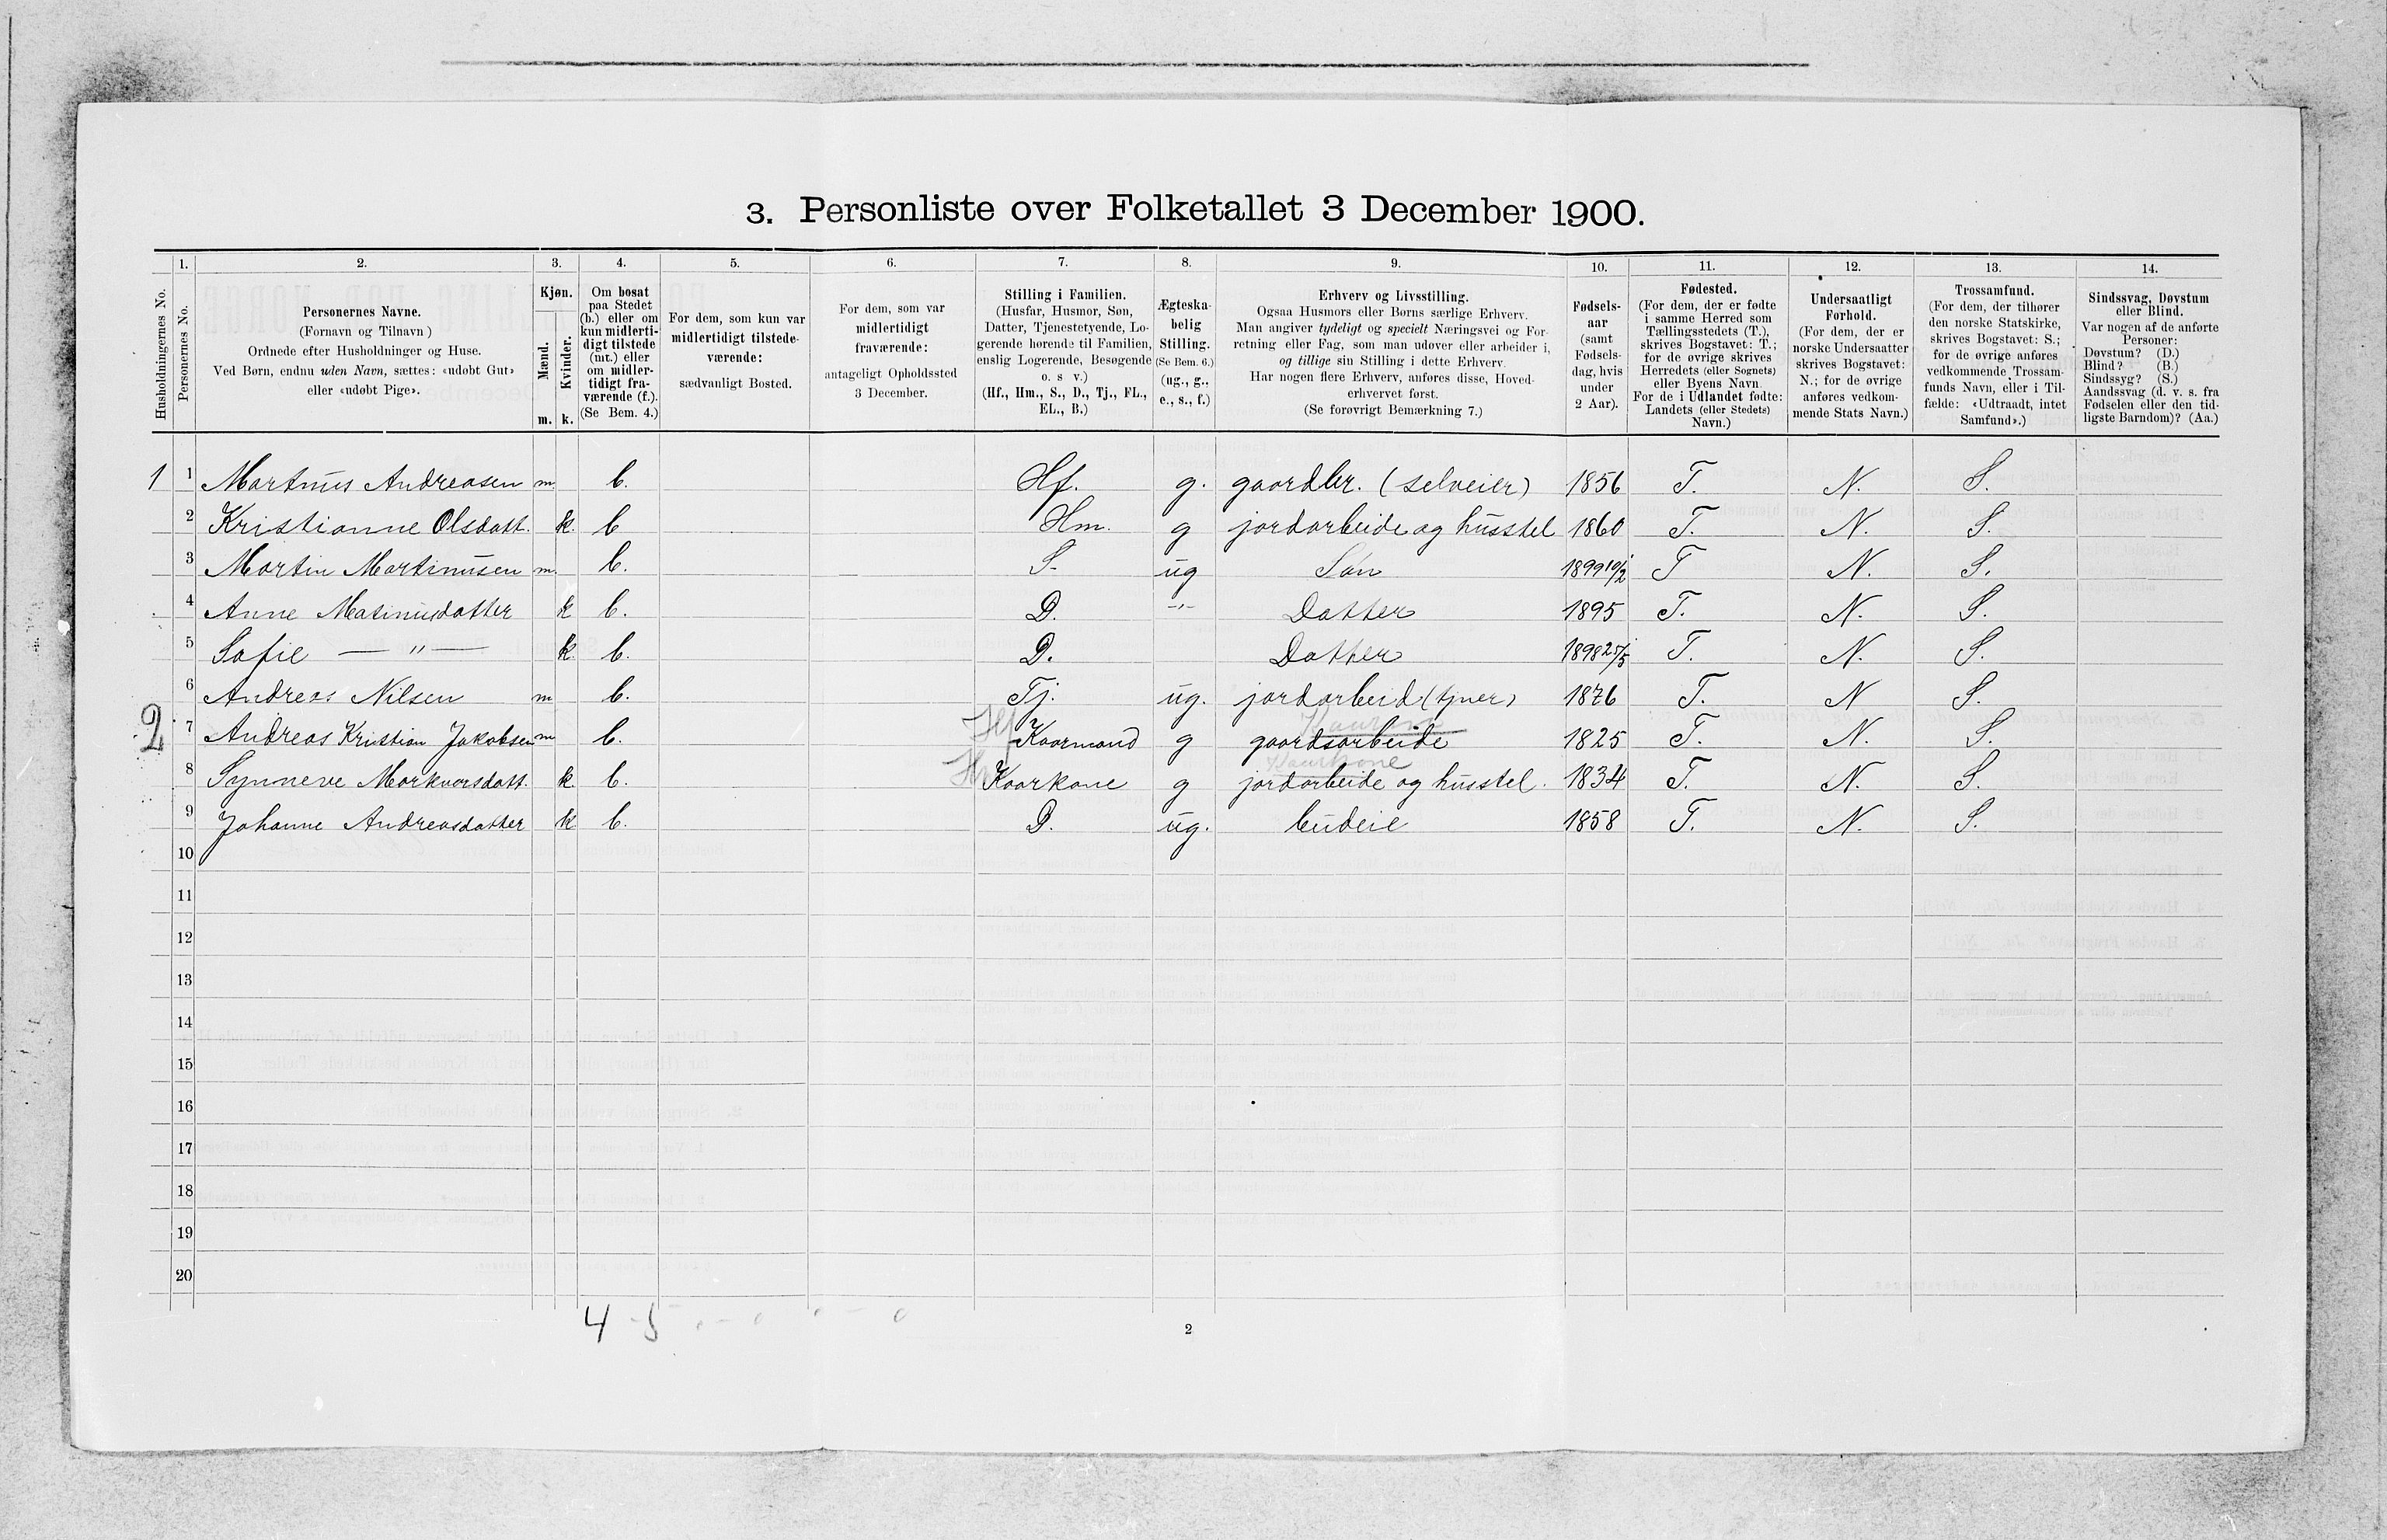 3. Personliste over Folketallet 3 December 1900.
1. 2. 3. 4. 5. 6. 7. 8. 9. 10. 11. 12. 13. 14.
Husholdningernes No.
Personernes No.
Personernes Navne.
(Fornavn og Tilnavn)
Ordnede efter Husholdninger og Huse.
Ved Børn, endnu uden Navn, sættes: «udøbt Gut»
eller «udøbt Pige».
Kjøn.
Mænd.
Kvinder.
m. k.
Om bosat
paa Stedet
(b.) eller om
kun midlerti-
digt tilstede
(mt.) eller
om midler-
tidigt fra-
værende (f.).
(Se Bem. 4.)
For dem, som kun var
midlertidigt tilstede-
værende:
sædvanligt Bosted.
For dem, som var
midlertidigt
fraværende:
antageligt Opholdssted
3 December.
Stilling i Familien.
(Husfar, Husmor, Søn,
Datter, Tjenestetyende, Lo-
gerende hørende til Familien,
enslig Logerende, Besøgende
o. s v.)
(Hf., Hm., S., D., Tj., FL.,
EL., B.)
Ægteska-
belig
Stilling.
(Se Bem. 6.)
(ug., g.,
e., s., f.)
Erhverv og Livsstilling.
Ogsaa Husmors eller Børns særlige Erhverv.
Man angiver tydeligt og specielt Næringsvei og For-
retning eller Fag, som man udøver eller arbeider i,
og tillige sin Stilling i dette Erhverv.
Har nogen flere Erhverv, anføres disse, Hoved-
erhvervet først.
(Se forøvrigt Bemærkning 7.)
Fødsels-
aar
(samt
Fødsels-
dag, hvis
under
2 Aar).
Fødested.
(For dem, der er fødte
i samme Herred som
Tællingsstedets (T.),
skrives Bogstavet: T.;
for de øvrige skrives
Herredets (eller Sognets)
eller Byens Navn.
For de i Udlandet fødte:
Landets (eller Stedets)
Navn.)
Undersaatligt
Forhold.
(For dem, der er
norske Undersaatter
skrives Bogstavet:
N.; for de øvrige
anføres vedkom-
mende Stats Navn.)
Trossamfund.
(For dem, der tilhører
den norske Statskirke,
skrives Bogstavet: S.;
for de øvrige anføres
vedkommende Trossam-
funds Navn, eller i Til-
fælde: «Udtraadt, intet
Samfund».)
Sindssvag, Døvstum
eller Blind.
Var nogen af de anførte
Personer:
Døvstum? (D.)
Blind? (B.)
Sindssyg? (S.)
Aandssvag (d. v. s. fra
Fødselen eller den tid-
ligste Barndom)? (Aa.)
1 1 Martinus Andreasen m. b. Hf. g. gaardbr. (selveier) 1856 T. N. S.
2 Kristianne Olsdatt. k. b Hm. g jordarbeide og husstel 1860 T. N. S.
3 Martin Martinusen m. b. S. ug Søn 1899 10/2 T N. S.
4 Anne Matinusdatter k b. D. -"- Datter 1895 T. N. S.
5 Sofie — " — k b. D. Datter 1898 25/5 T. N. S.
6 Andreas Nilsen m b. Tj. ug. jordarbeid (tjner) 1876 T. N S.
2 7 Andreas Kristian Jakobsen m b. Hf Kaarmand g gaardsarbeide 1825 T. N. S.
Kaarkone
8 Synneve Markvorsdatt. k. b. Hm Kaarkone g jordarbeide og husstel. 1834 T. N. S.
9 Johanne Andreasdatter k b. D. ug. budeie 1858 T. N. S.
10
11
12
13
14
15
16
17
18
19
20
4 - 5
2